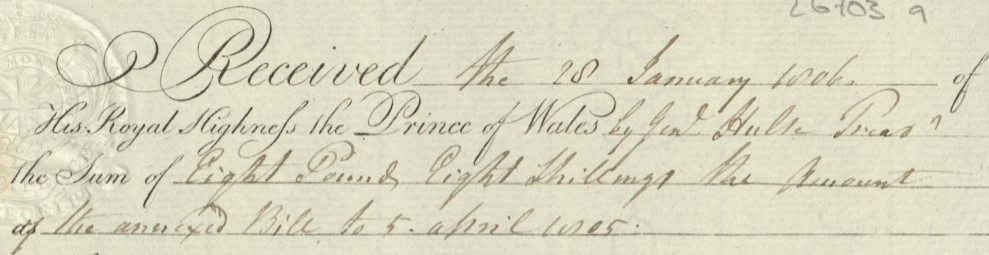 26703 a
Received the 28 January 1806. of
His Royal Highneſs the Prince of Wales by Genl. Hulse Treasr
the Sum of Eight Pounds Eight Shillings the Amount
of the annexed Bill to 5. April 1805.